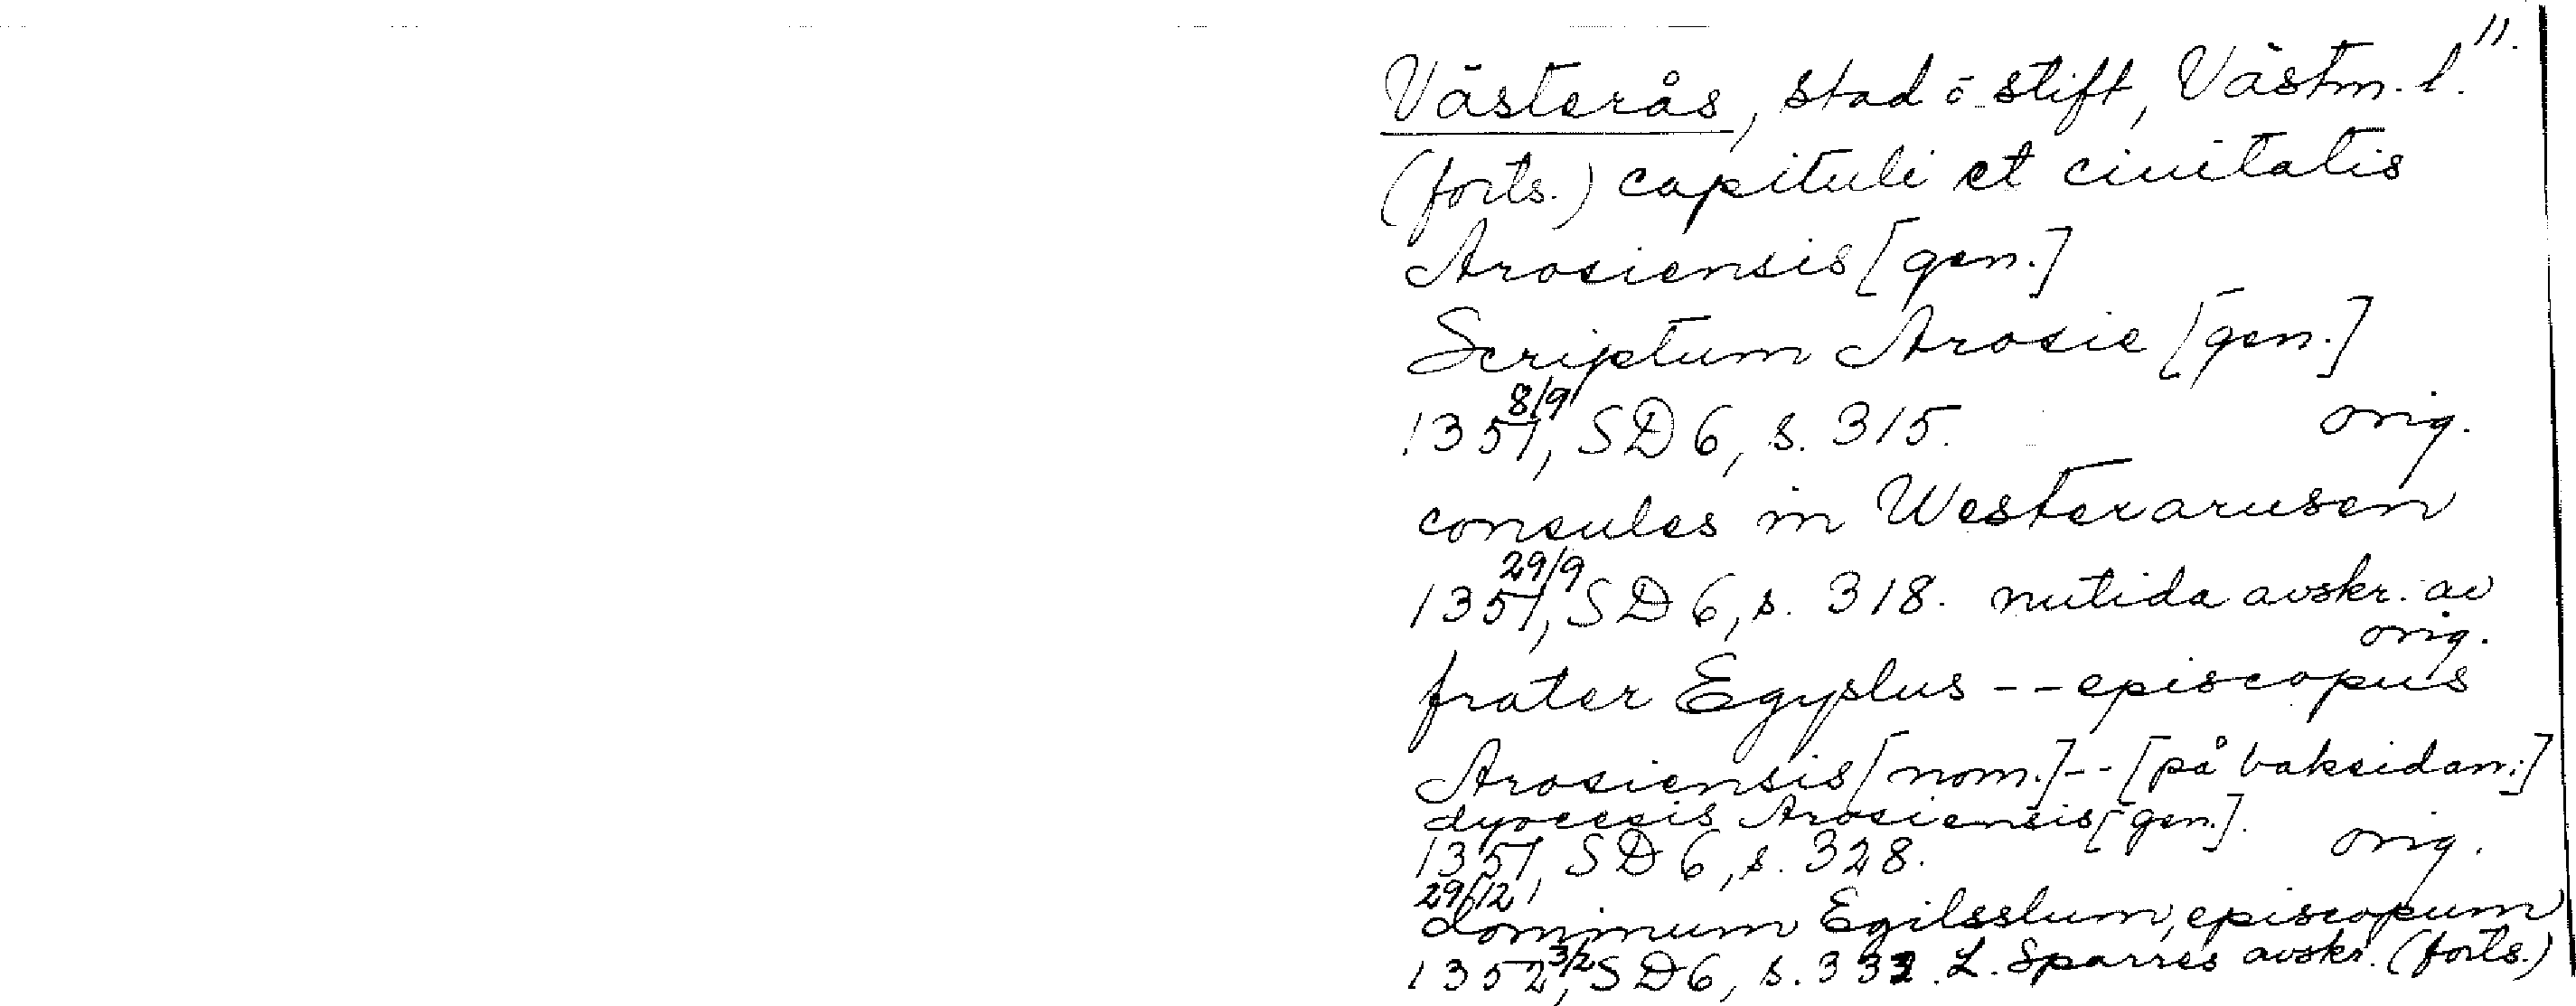 11.
Västerås, stad o. stift, Västm. l.
(forts.) capituli et ciuitatis
Arosiensis [gen.]
Scriptum Arosie [gen.]
1351 8/9, SD 6, s. 315. orig.
consules in Westerarusen
1351 29/9, SD 6, s. 318. nutida avskr. av
orig.
frater Egyslus -- episcopus
Arosiensis [nom.] -- [på baksidan:]
dyocesis Arosiensis [gen.].
1351, SD 6, s. 328. orig.
29/12
dominum Egilsslum, episcopum
1352 3/2, SD 6, s. 332. L. Sparres avskr. (forts.)